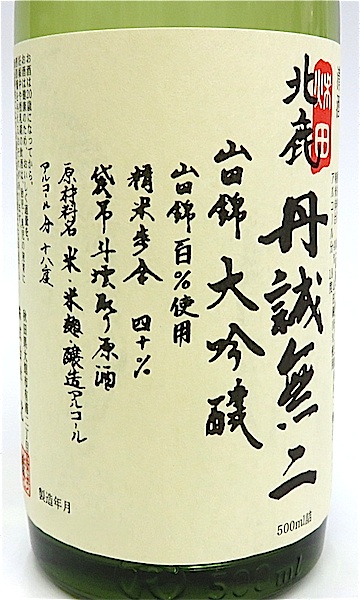 清酒
秋田
北鹿
丹誠無二
500ml詰
山田錦 大吟醸
山田錦百%使用
精米歩合 四十%
袋吊斗壜取り原酒
原材料名 米・米麹・醸造アルコール
アルコール分 十八度
製造年月
お酒は20歳になってから。
500ml